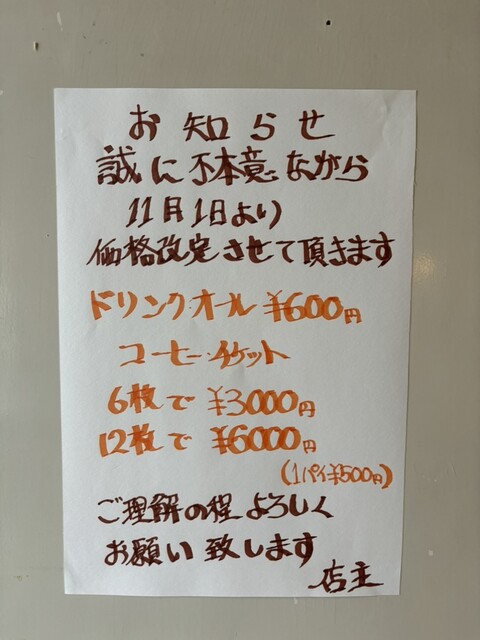 お知らせ
誠に不本意ながら
11月1日より
価格改定させて頂きます
ドリンク・オール ¥600円
コーヒー・チケット
6枚で ¥3000円
12枚で ¥6000円
(1パイ¥500円)
ご理解の程よろしく
お願い致します
店主